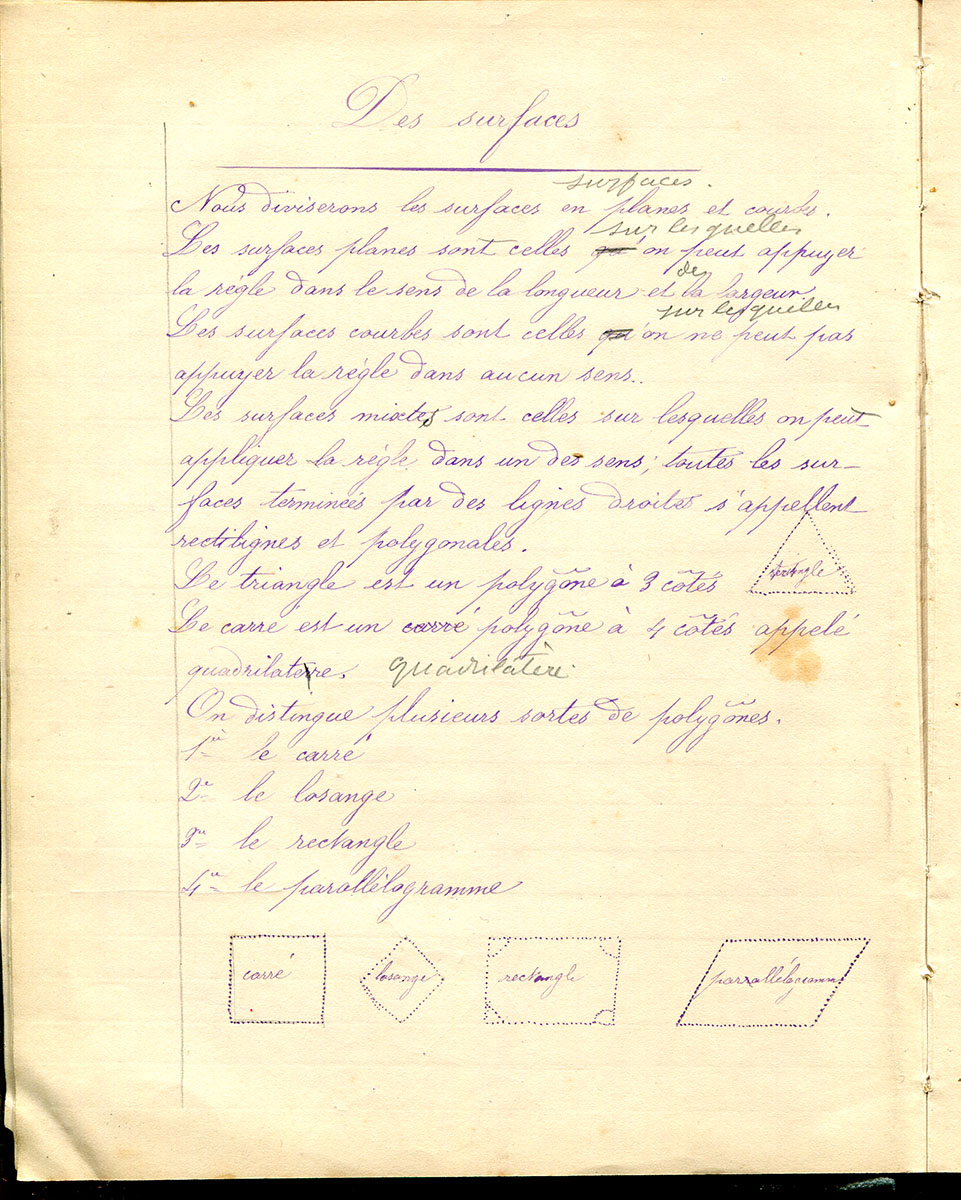 Des surfaces
surfaces.
Nous diviserons les surfaces en planes et courbes.
sur lesquelles
Les surfaces planes sont celles qu'on peut appuyer
de
la règle dans le sens de la longueur et la largeur
sur lesquelles
Les surfaces courbes sont celles qu'on ne peut pas
appuyer la règle dans aucun sens..
Les surfaces mixtes sont celles sur lesquelles on peut
appliquer la règle dans un des sens; toutes les sur-
faces terminées par des lignes droites s'appellent
rectilignes et polygonales.
Le triangle est un polygône à 3 côtés
triangle
Le carré est un carré polygône à 4 côtés appelé
quadrilaterre. quadrilatère.
On distingue plusieurs sortes de polygônes.
1er le carré
2e le losange
3e le rectangle
4e le parallélogramme
carré losange rectangle parrallélogramme